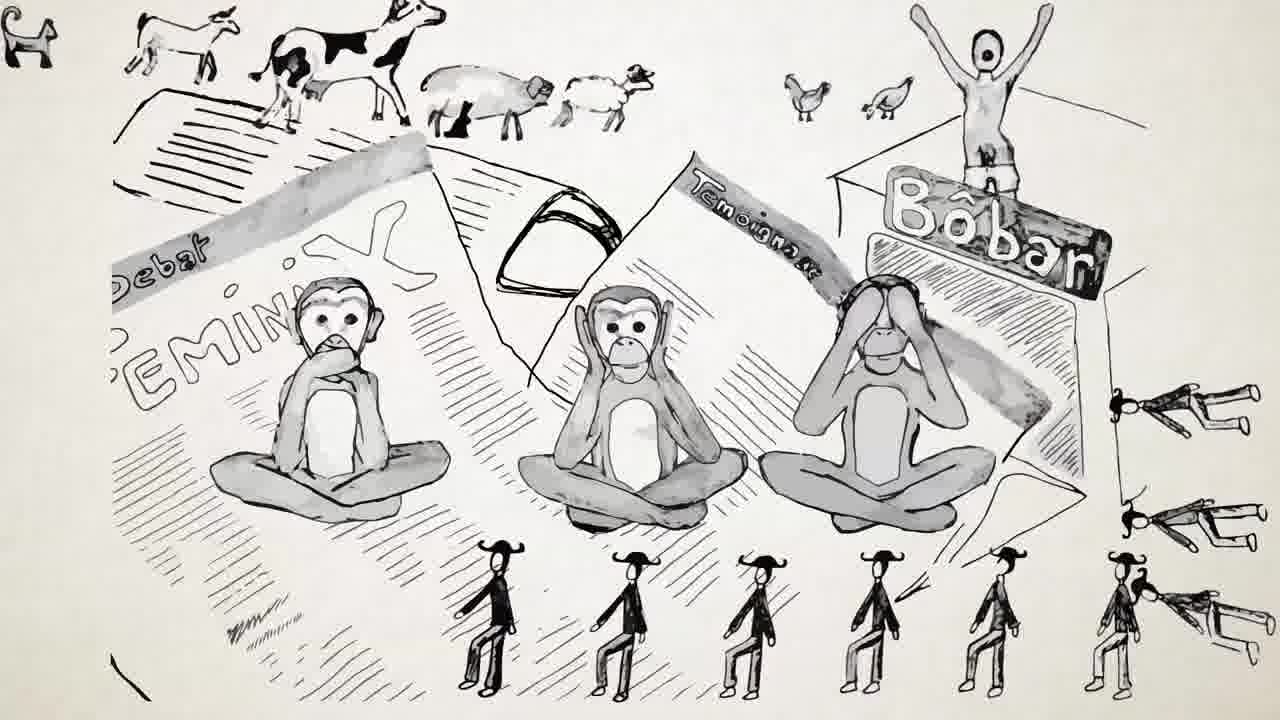 Debat
Temoignage
Bôbar